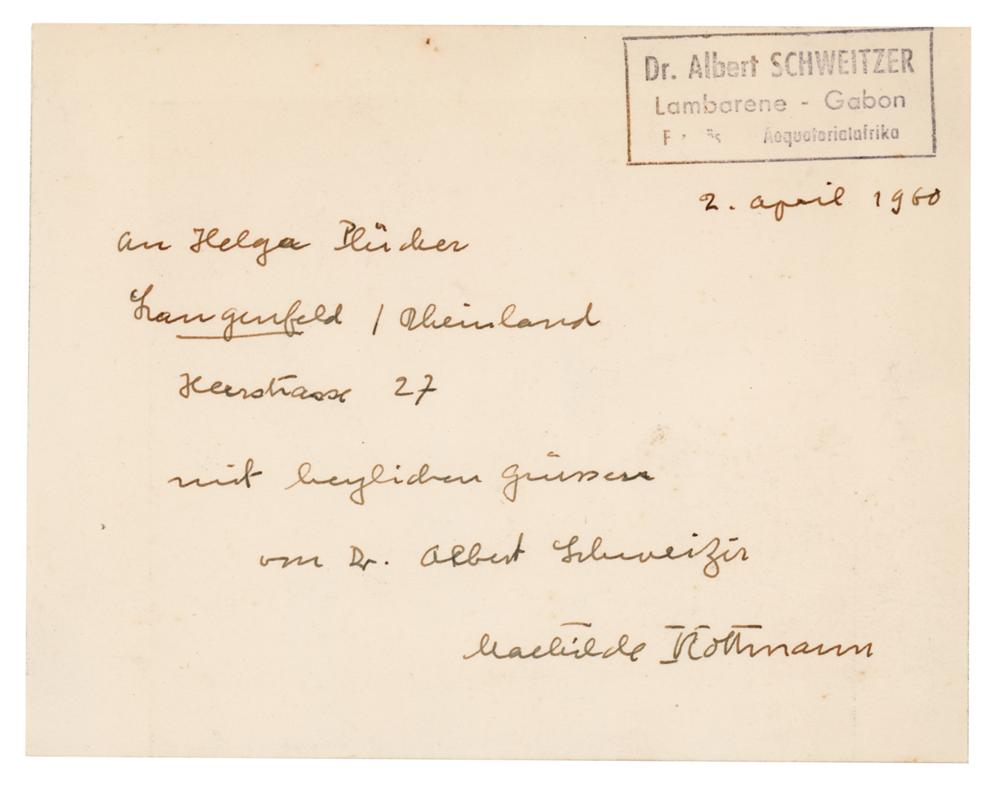 Dr. Albert SCHWEITZER
Lambarene - Gabon
Aequatorialafrika
2. april 1960
an Helga Plücker
Langenfeld / Rheinland
Heerstrasse 27
mit herzlichen Grüssen
von Dr. Albert Schweitzer
Mathilde Kottmann